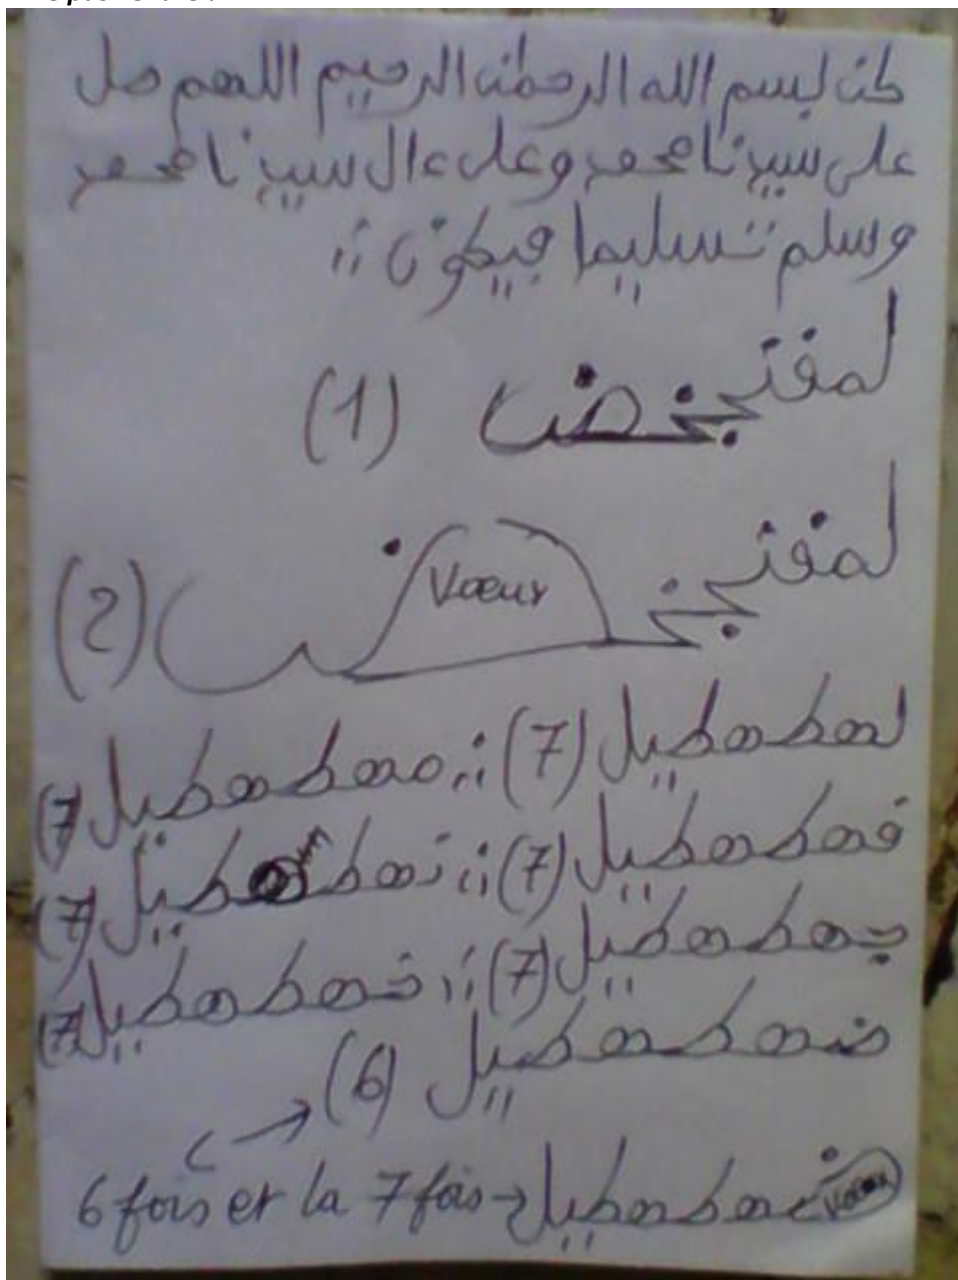 كن بسم الله الرحمن الرحيم اللهم صل
على سيدنا محمد وعلى ءال سيدنا محمد
وسلم تسليما فيكون
لمقنجخض (1)
لمقنجخض Vœux (2)
لهطهطيل (7) مهطهطيل (7)
قهطهطيل (7) نهطهطيل (7)
جهطهطيل (7) خهطهطيل (7)
ضهطهطيل (6)
6 fois et la 7 fois → ضهطهطيل Vœux